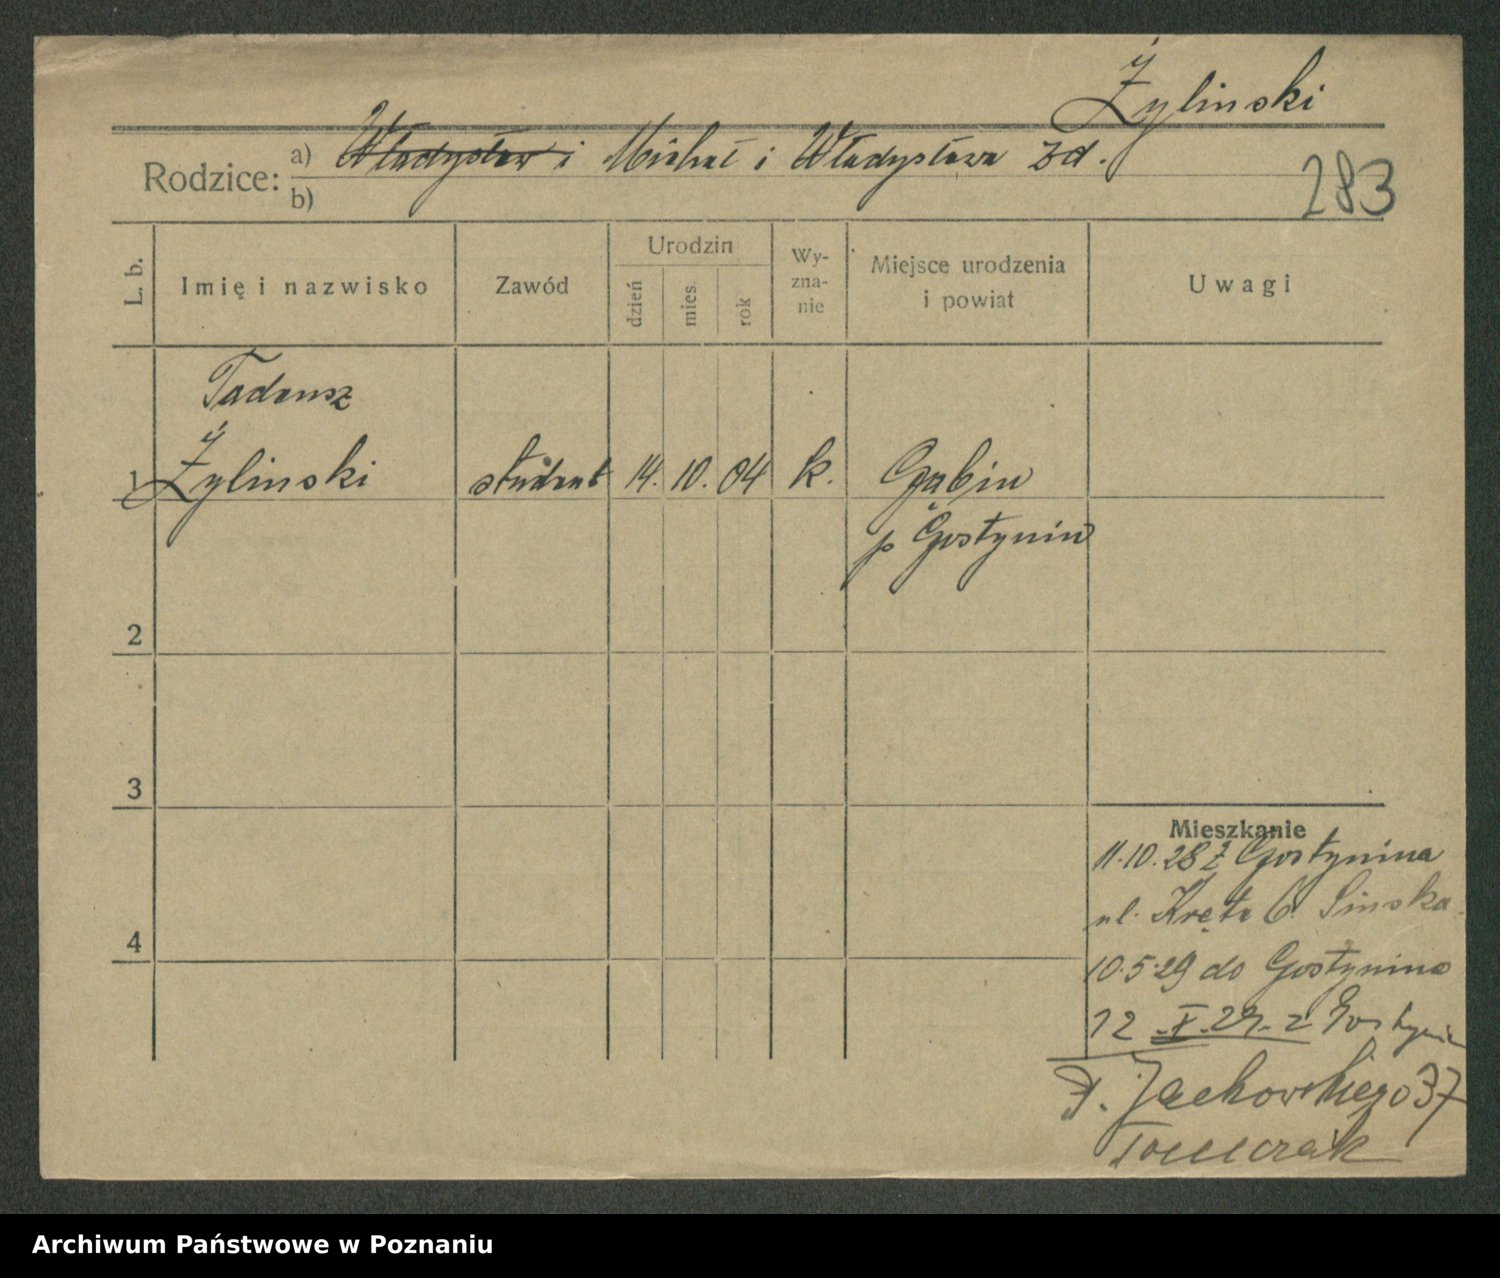 Żylinski
Rodzice: a) Władysław i Michał i Władysława zd.
b)
283
L. b. Imię i nazwisko Zawód Urodzin dzień mies. rok Wy-zna-nie Miejsce urodzenia i powiat Uwagi
Tadeusz
1 Żylinski student 14. 10. 04 k. Gąbin
p Gostynin
2
3
Mieszkanie
11.10.28 z Gostynina
ul. Kręta 6. Sinska
4
10.5.29 do Gostynina
12 X.29. z Gostynin
F. Jackowskiego 37
Tomczak
Archiwum Państwowe w Poznaniu